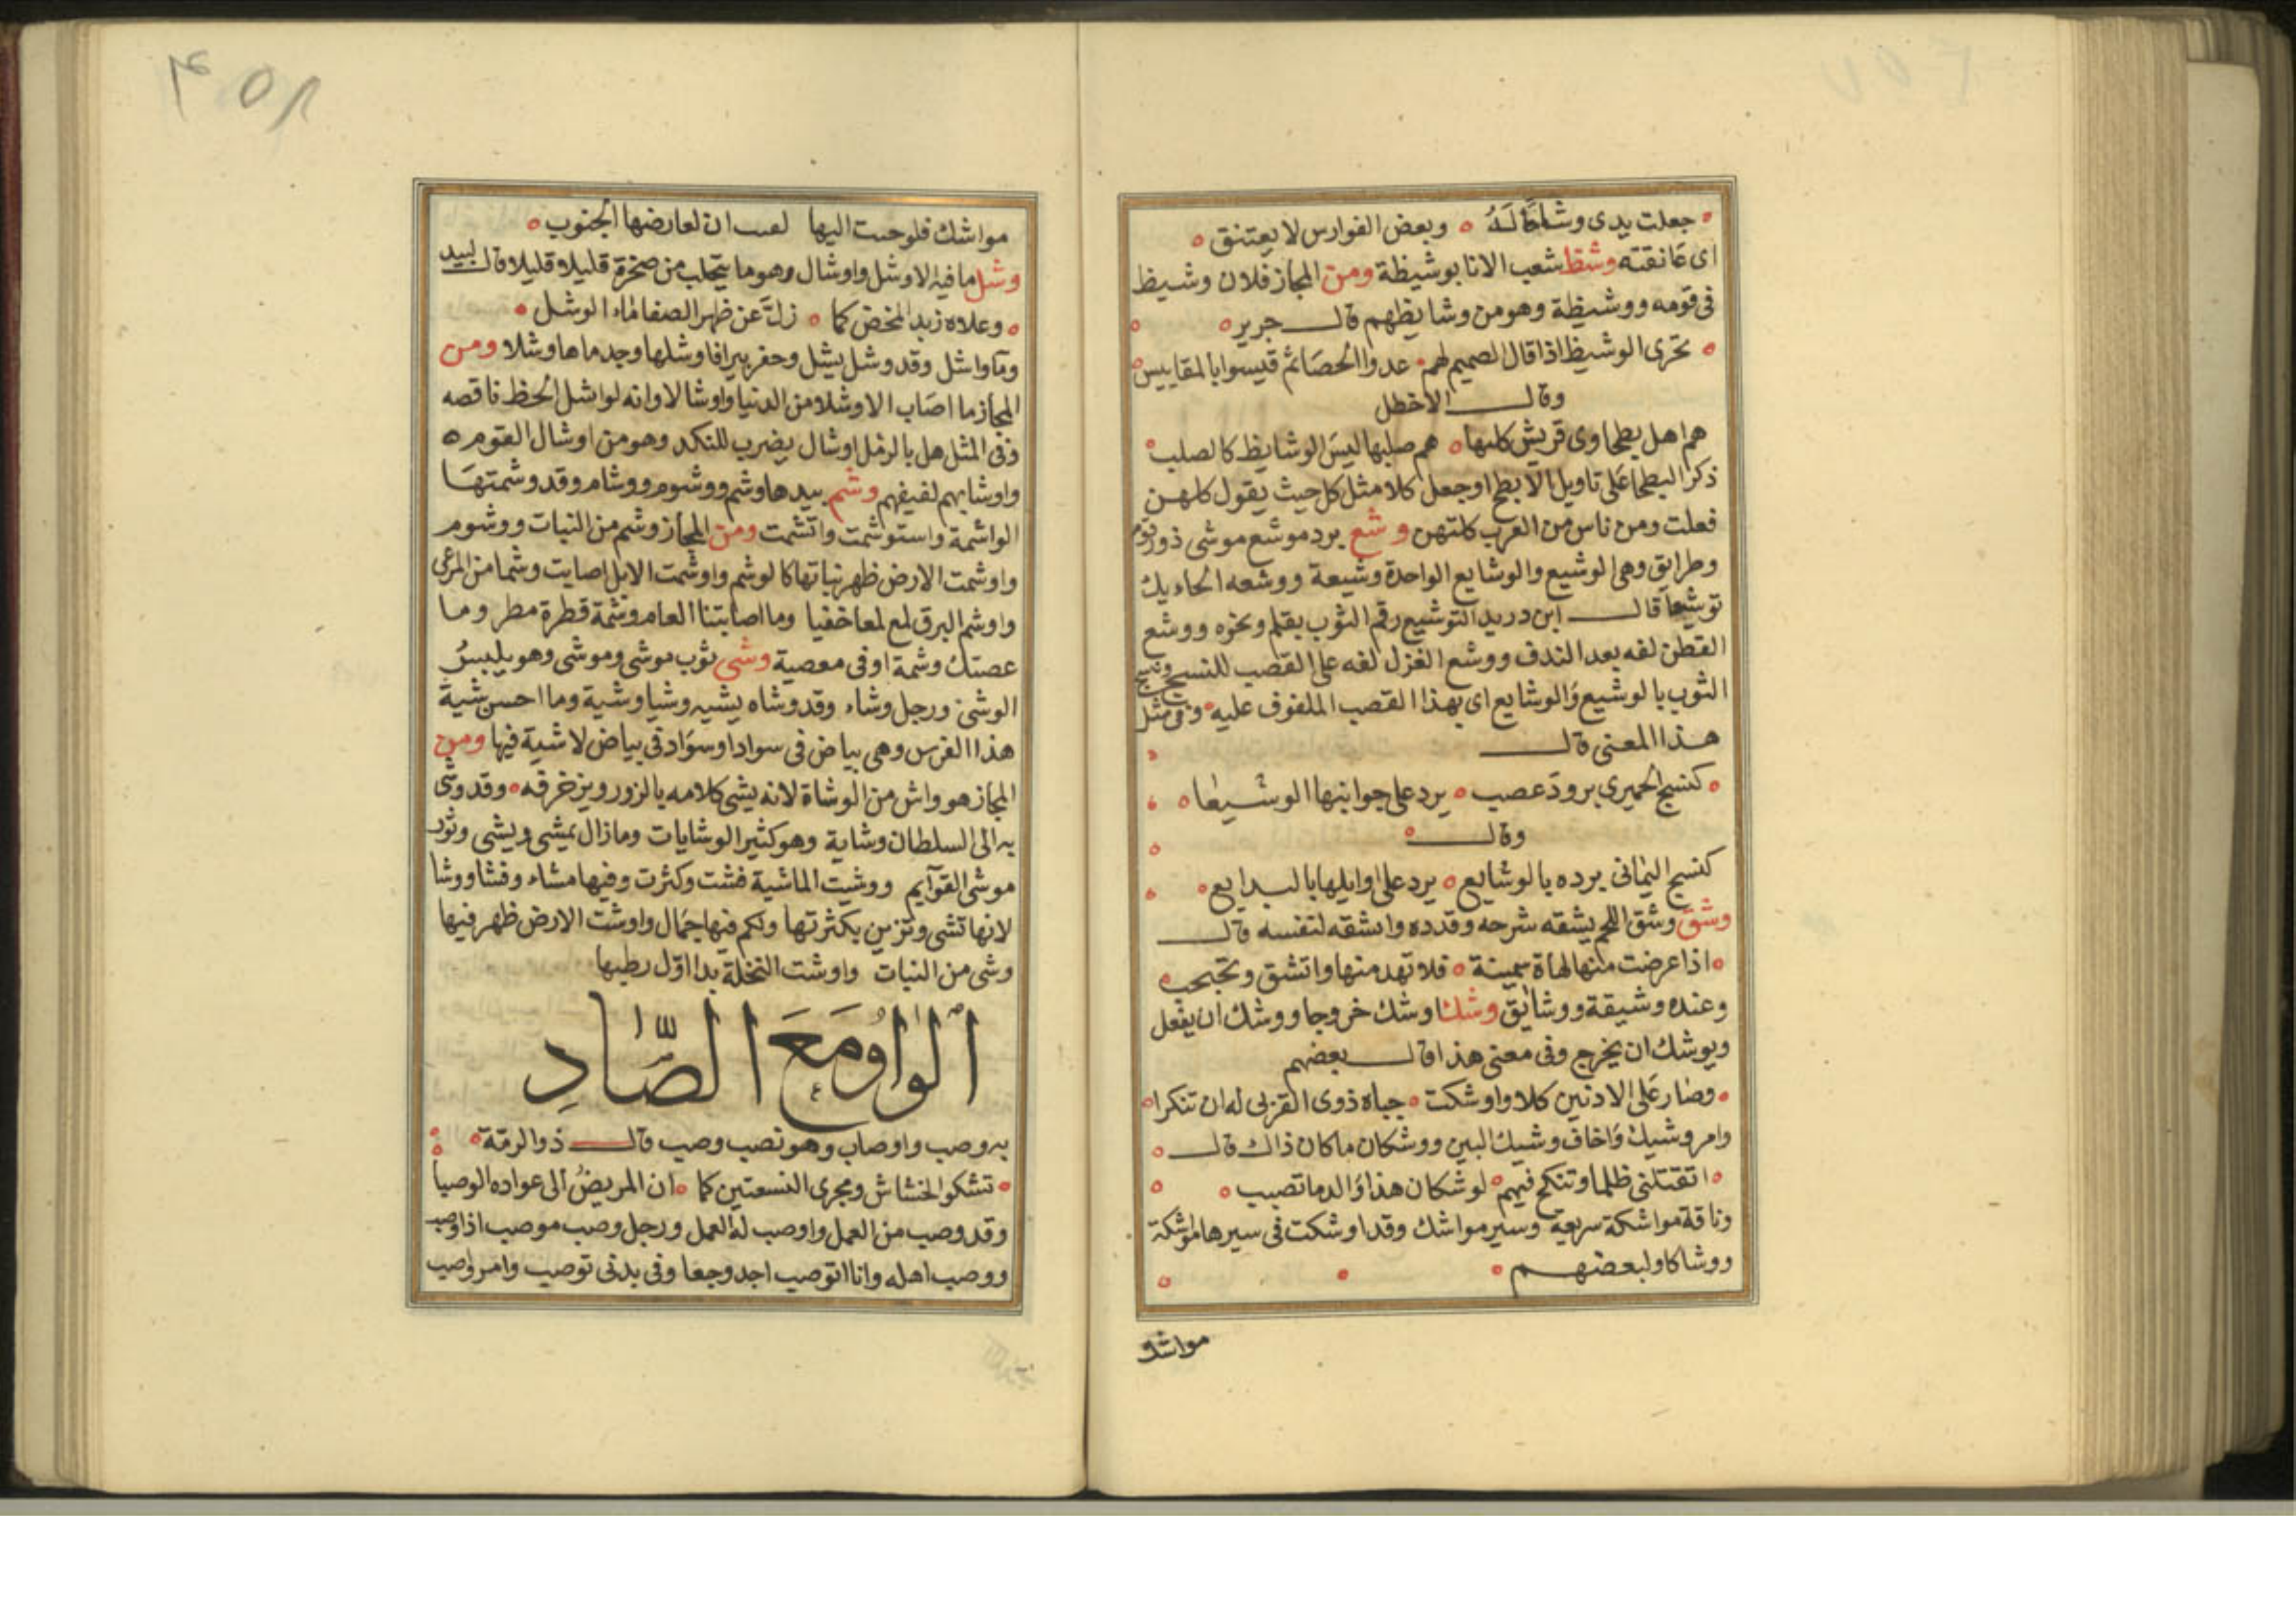 جعلت يدى وشاحًا لَهُ وبعض الفوارس لا يعتنق
اى عَانقته وشظ شعب الانا بوشيظة ومن المجاز فلان وشيظ
فى قومه ووشيظة وهو من وشايظهم قال جرير
تحزى الوشيظ اذا قال الصميم لهم عدوا الحصَا ثم قيسوا بالمقاييس
وقال الاخطل
هم اهل بطحاوى قريش كليها هم صلبها ليسَ الوشايظ كالصلب
ذكر البطحا عَلى تاويل الابطح اوجعل كلا مثل كل حيث يقول كلهن
فعلت ومن ناس من العرب كلتهن وشع برد موشع موشى ذو رقوم
وطرايق وهى الوشيع والوشايع الواحدة وشيعة ووشعه الحاءيك
توشيعاً قال ابن دريد التوشيع رقم الثوب بقلم ونحزه ووشع
القطن لفه بعد الندف ووشع الغزل لفه على القصب للنسج ونسج
الثوب بالوشيع وَالوشايع اى بهذا القصب الملفوف عليه وفى مثل
هذا المعنى قال
كنسج الحميرى برودَ عصب يرد على جوانبها الوشيعا
وقال
كنسج اليمانى برده بالوشايع يرد على اوايلها بالبدايع
وشق وشق اللحم يشقه شرحه وقدده واتشقه لنفسه قال
اذا عرضت منها لهاة سمينة فلا تهد منها واتشق وتجبجب
وعنده وشيقة ووشايق وشك اوشك خروجا ووشك ان يفعل
ويوشك ان يخرج وفى معنى هذا قال بعضهم
وصَار عَلى الادنين كلا واوشكت جباه ذوى القربى له ان تنكرا
وامر وشيك وَاخاف وشيك البين ووشكان ماكان ذاك قال
اتقتلنى ظلما وتنكح فيهم لوشكان هذا وَالدما تصبب
وناقة مواشكة سريعة وسير مواشك وقد اوشكت فى سيرها مواشكة
ووشاكا ولبعضهم
مواشك
٤٥٨
مواشك فلو حنت اليها ان لعارضها الجنوب
وشل ما فيه الا وشل واوشال وهو ما يتحلب من صخرة قليلا قليلا قال لبيد
وعلاه زبد المخض كما زلَّ عن ظهر الصفا مَاء الوشل
ومآ واشل وقد وشل يشل وحفر بيرا فاوشلها وجد ماها وشلا ومن
المجاز ما اصَاب الا وشلا من الدنيا واوشالا وانه لواشل الحظ ناقصه
وفى المثل هل بالرمل اوشال يضرب للنكد وهو من اوشال القوم
واوشابهم لفيفهم وشم بيدها وشم ووشوم ووشام وقد وشمتهَا
الواشمة واستوشمت واتشمت ومن المجاز وشم من النبات ووشوم
واوشمت الارض ظهر نباتها كالوشم واوشمت الابل اصابت وشما من المرعى
واوشم البرق لمع لمعا خفيا وما اصابتنا العام وشمة قطرة مطر وما
عصتك وشمة اوفى معصية وشى ثوب موشى وموشى وهو يلبسُ
الوشى ورجل وشاء وقد وشاه يشيه وشيا وشية وما احسن شية
هذا الفرس وهى بياض فى سواد او سوَاد فى بياض لا شية فيها ومن
المجاز هو واش من الوشاة لانه يشى كلامه بالزور ويزخرفه وقد وشى
به الى السلطان وشاية وهو كثير الوشايات ومازال يمشى ويشى وثور
موشى القوآيم ووشيت الماشية فشت وكثرت وفيها مشاء وفشا ووشا
لانها تشى وتزين بكثرتها ولكم فيها جمَال واوشت الارض ظهر فيها
وشى من النبات واوشت النخلة بدا اوّل رطبها
الوَاوُ مَعَ الصَّادِ
به وصب واوصاب وهو نصب وصب قال ذو الرمّة
تشكو الخشاش ومجرى النسعتين كما ان المريضُ الى عواده الوصبا
وقد وصب من العمل واوصب له العمل ورجل وصب موصب اذا وصب
ووصب اهله وانا اتوصب اجد وجعا وفى بدنى توصيب وامر وصب